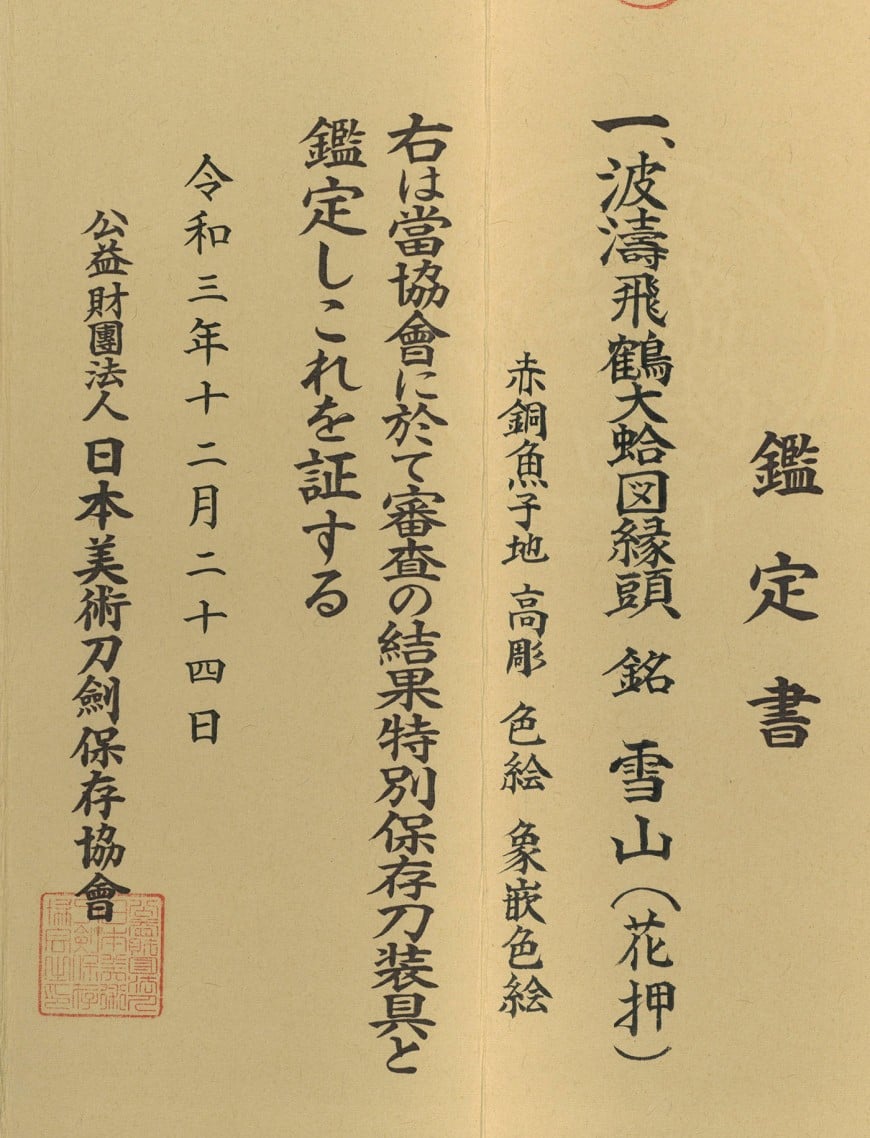 鑑定書
一、波濤飛鶴大蛤図縁頭 銘 雪山(花押)
赤銅魚子地 高彫 色絵 象嵌色絵
右は當協會に於て審査の結果特別保存刀装具と
鑑定しこれを証する
令和三年十二月二十四日
公益財團法人 日本美術刀劍保存協會